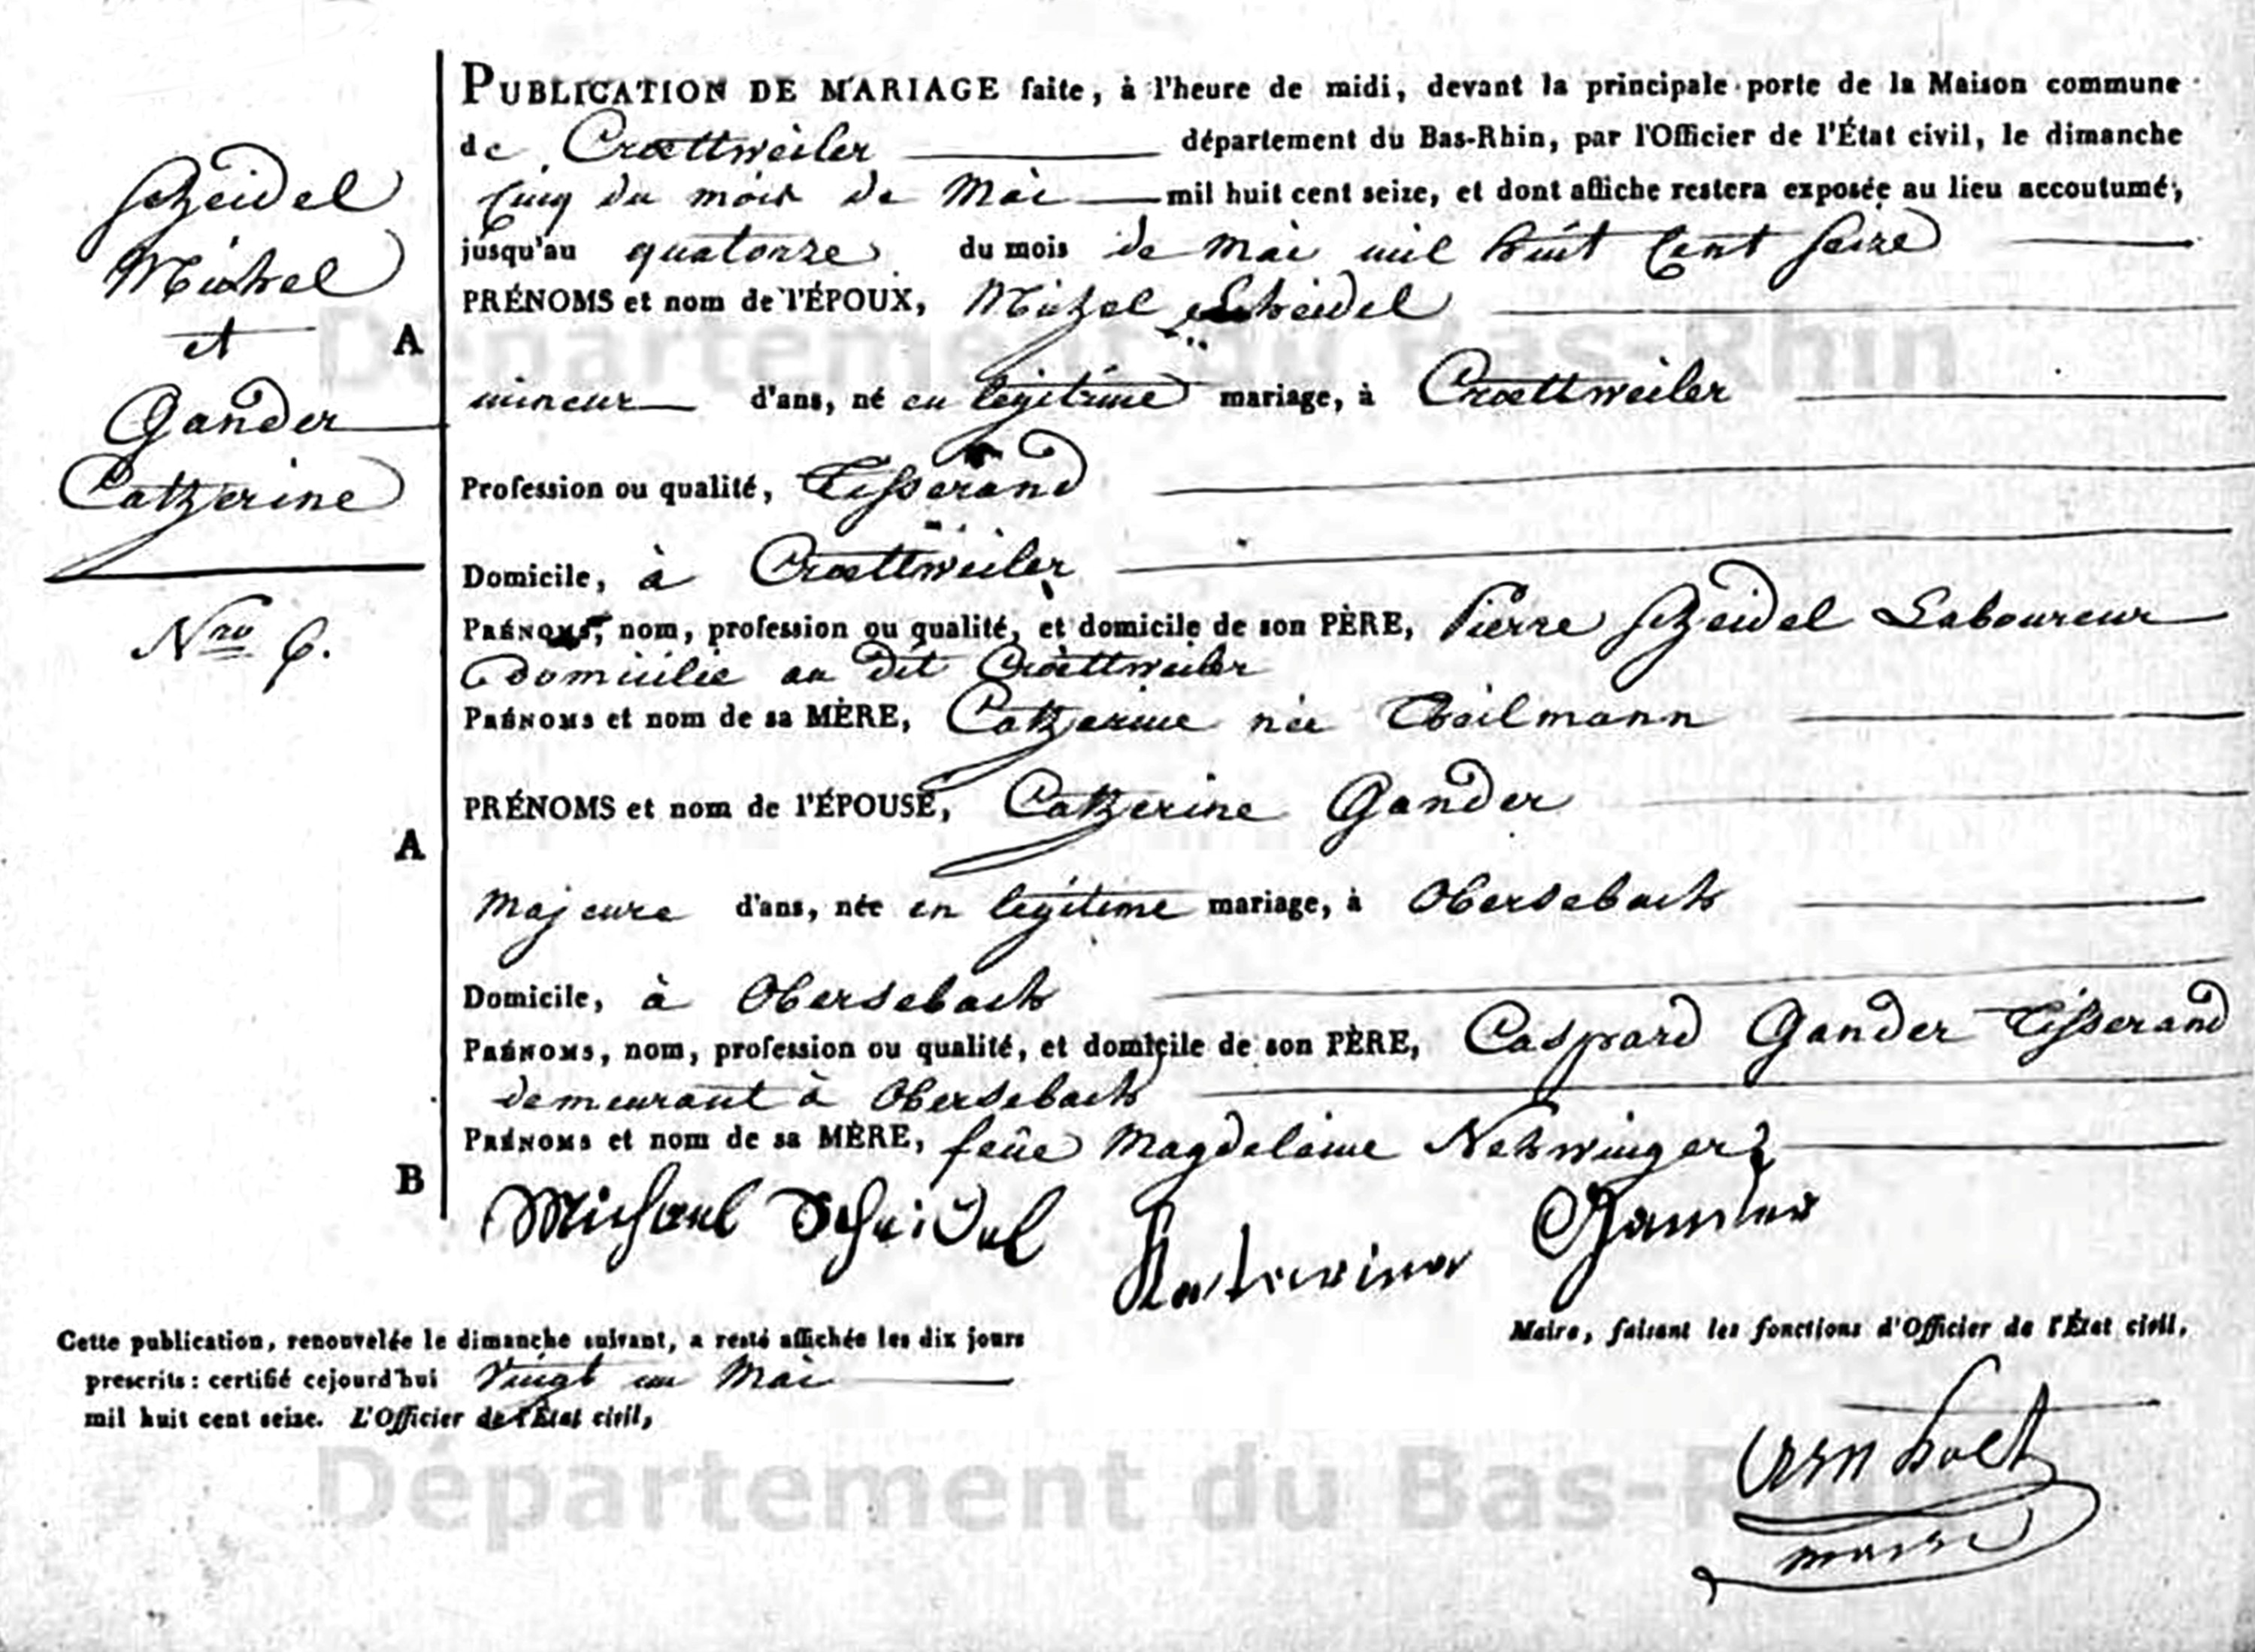 Scheidel
Michel
et
Gander
Catherine
Nro 6.
PUBLICATION DE MARIAGE faite, à l'heure de midi, devant la principale porte de la Maison commune
de Crœttweiler département du Bas-Rhin, par l'Officier de l'État civil, le dimanche
Cinq du mois de Mai mil huit cent seize, et dont affiche restera exposée au lieu accoutumé,
jusqu'au quatorze du mois de Mai mil huit Cent Seize
PRÉNOMS et nom de l'ÉPOUX, Michel Scheidel
A
mineur d'ans, né en légitime mariage, à Crœttweiler
Profession ou qualité, Tisserand
Domicile, à Crœttweiler
PRÉNOMS, nom, profession ou qualité, et domicile de son PÈRE, Pierre Scheidel Laboureur
domicilié au dit Crœttweiler
PRÉNOMS et nom de sa MÈRE, Catherine née Theilmann
PRÉNOMS et nom de l'ÉPOUSE, Catherine Gander
A
Majeure d'ans, née en légitime mariage, à Obersebach
Domicile, à Obersebach
PRÉNOMS, nom, profession ou qualité, et domicile de son PÈRE, Caspard Gander Tisserand
demeurant à Obersebach
PRÉNOMS et nom de sa MÈRE, feüe Magdelaine
B
Michael Scheidel Katerina Gander
Cette publication, renouvelée le dimanche suivant, a resté affichée les dix jours
prescrits : certifié cejourd'hui Vingt un Mai
mil huit cent seize. L'Officier de l'État civil,
Maire, faisant les fonctions d'Officier de l'État civil,
maire
Département du Bas-Rhin
Département du Bas-Rhin